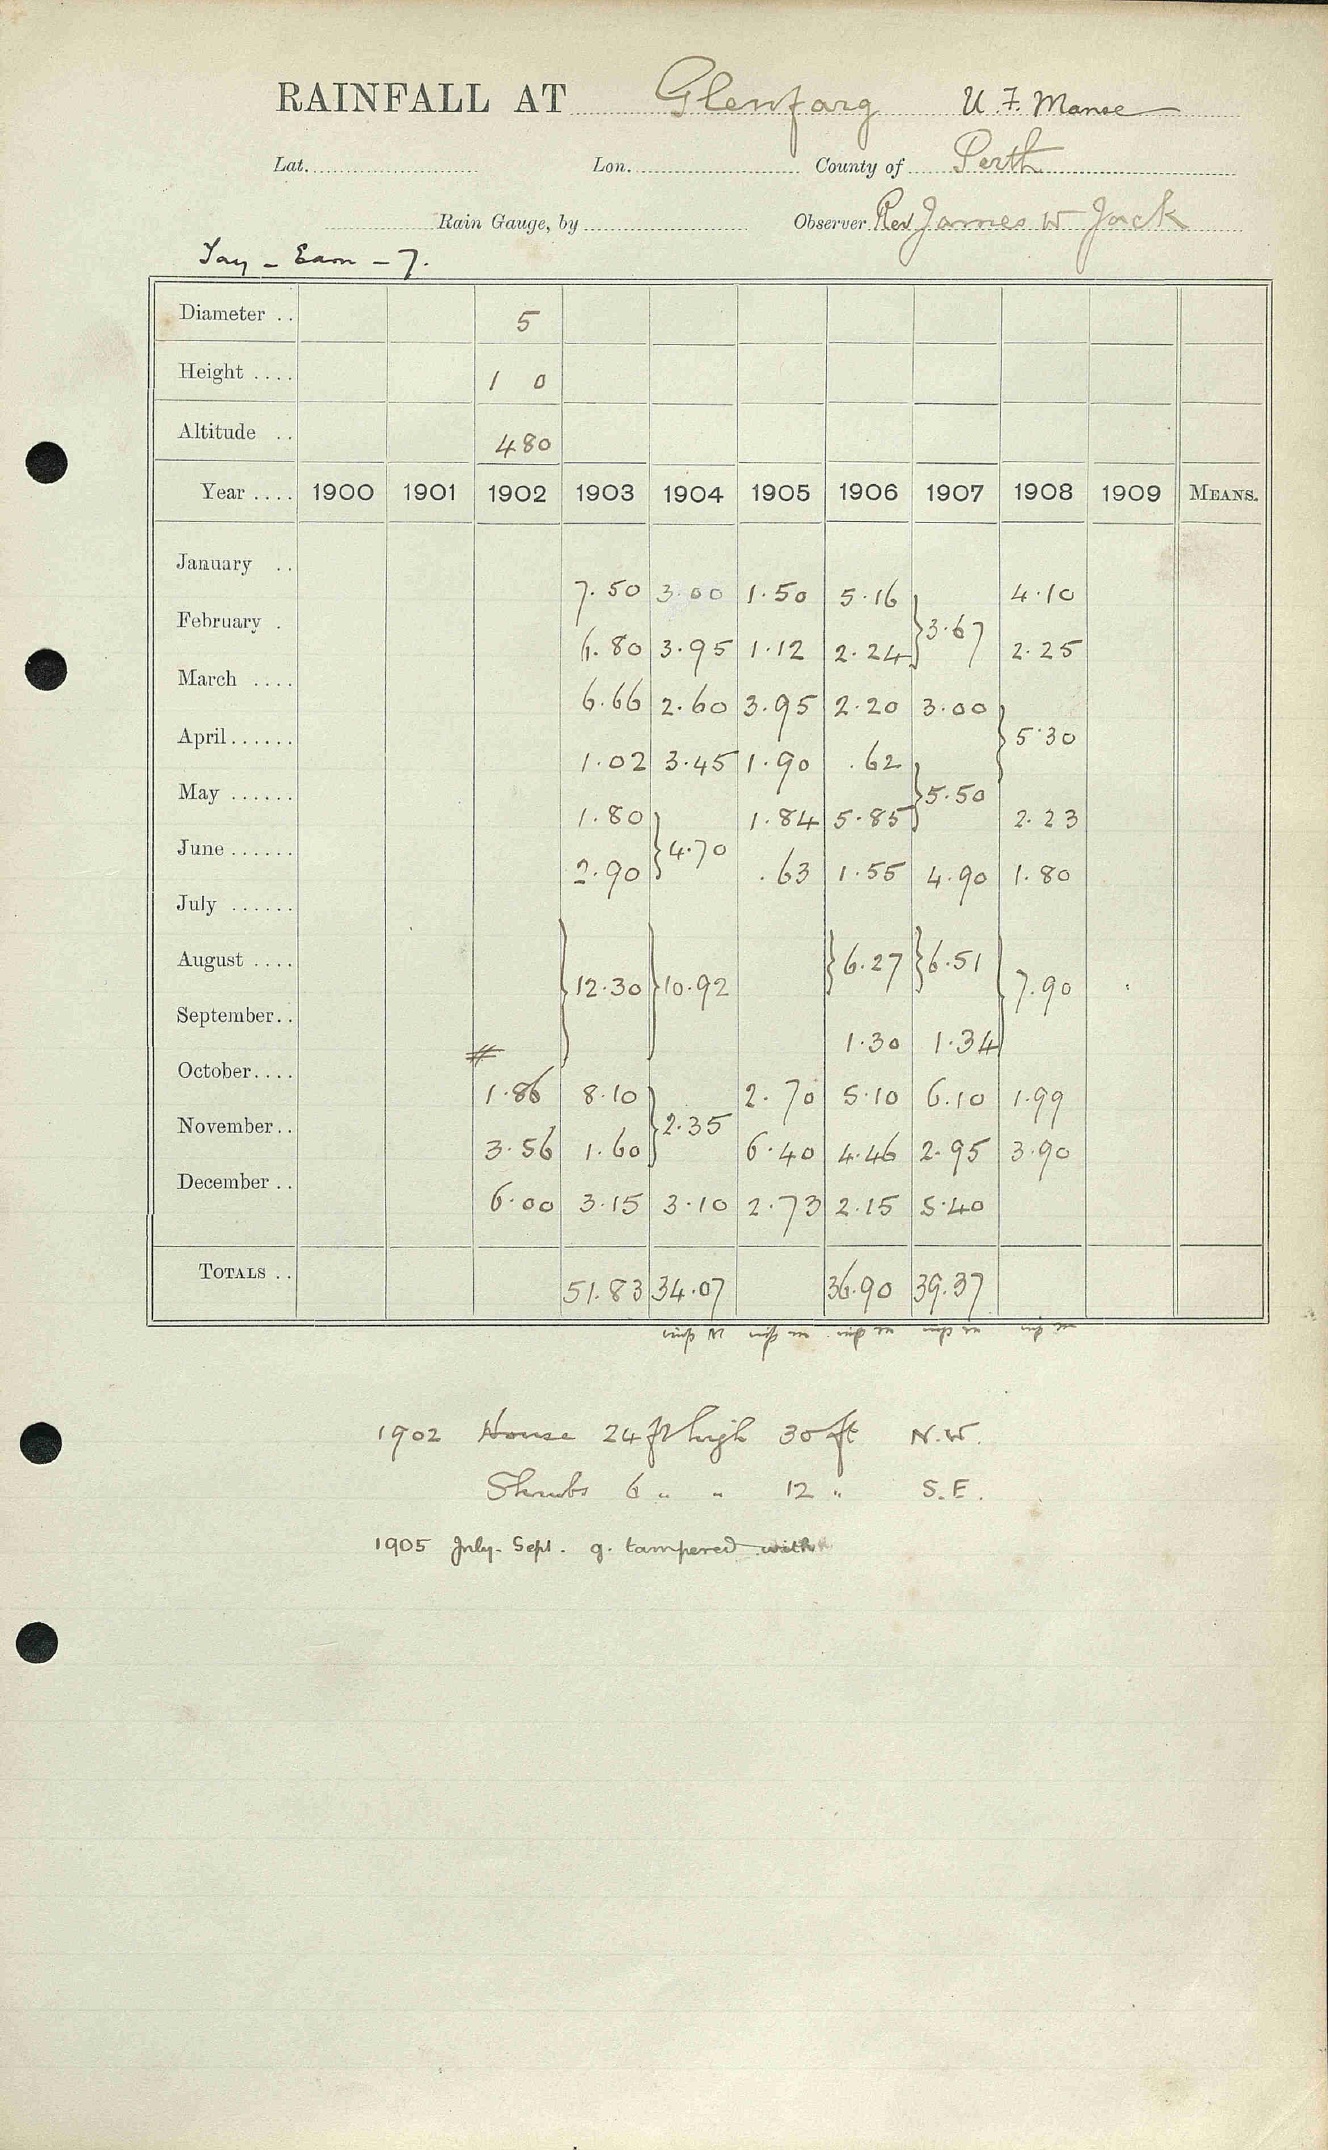 RAINFALL AT Glenfarg U. F. Manse
Lat. Lon. County of Perth
Rain Gauge, by Observer Rev James W Jack
Tay - Earn - 7.
Diameter .. 5
Height .... 1 0
Altitude .. 480
Year .... 1900 1901 1902 1903 1904 1905 1906 1907 1908 1909 MEANS.
January .. 7.50 3.00 1.50 5.16 4.10
} 3.67
February . 6.80 3.95 1.12 2.24 2.25
March .... 6.66 2.60 3.95 2.20 3.00
} 5.30
April...... 1.02 3.45 1.90 .62
} 5.50
May ...... 1.80 1.84 5.85 2.23
} 4.70
June ...... 2.90 .63 1.55 4.90 1.80
July ......
August .... } 12.30 } 10.92 } 6.27 } 6.51 } 7.90
September.. 1.30 1.34
#
October.... 1.86 8.10 2.70 5.10 6.10 1.99
} 2.35
November.. 3.56 1.60 6.40 4.46 2.95 3.90
December .. 6.00 3.15 3.10 2.73 2.15 5.40
TOTALS .. 51.83 34.07 36.90 39.37
1902 House 24 ft high 30 ft N.W.
Shrubs 6 " " 12 " S.E.
1905 July-Sept. g. tampered with